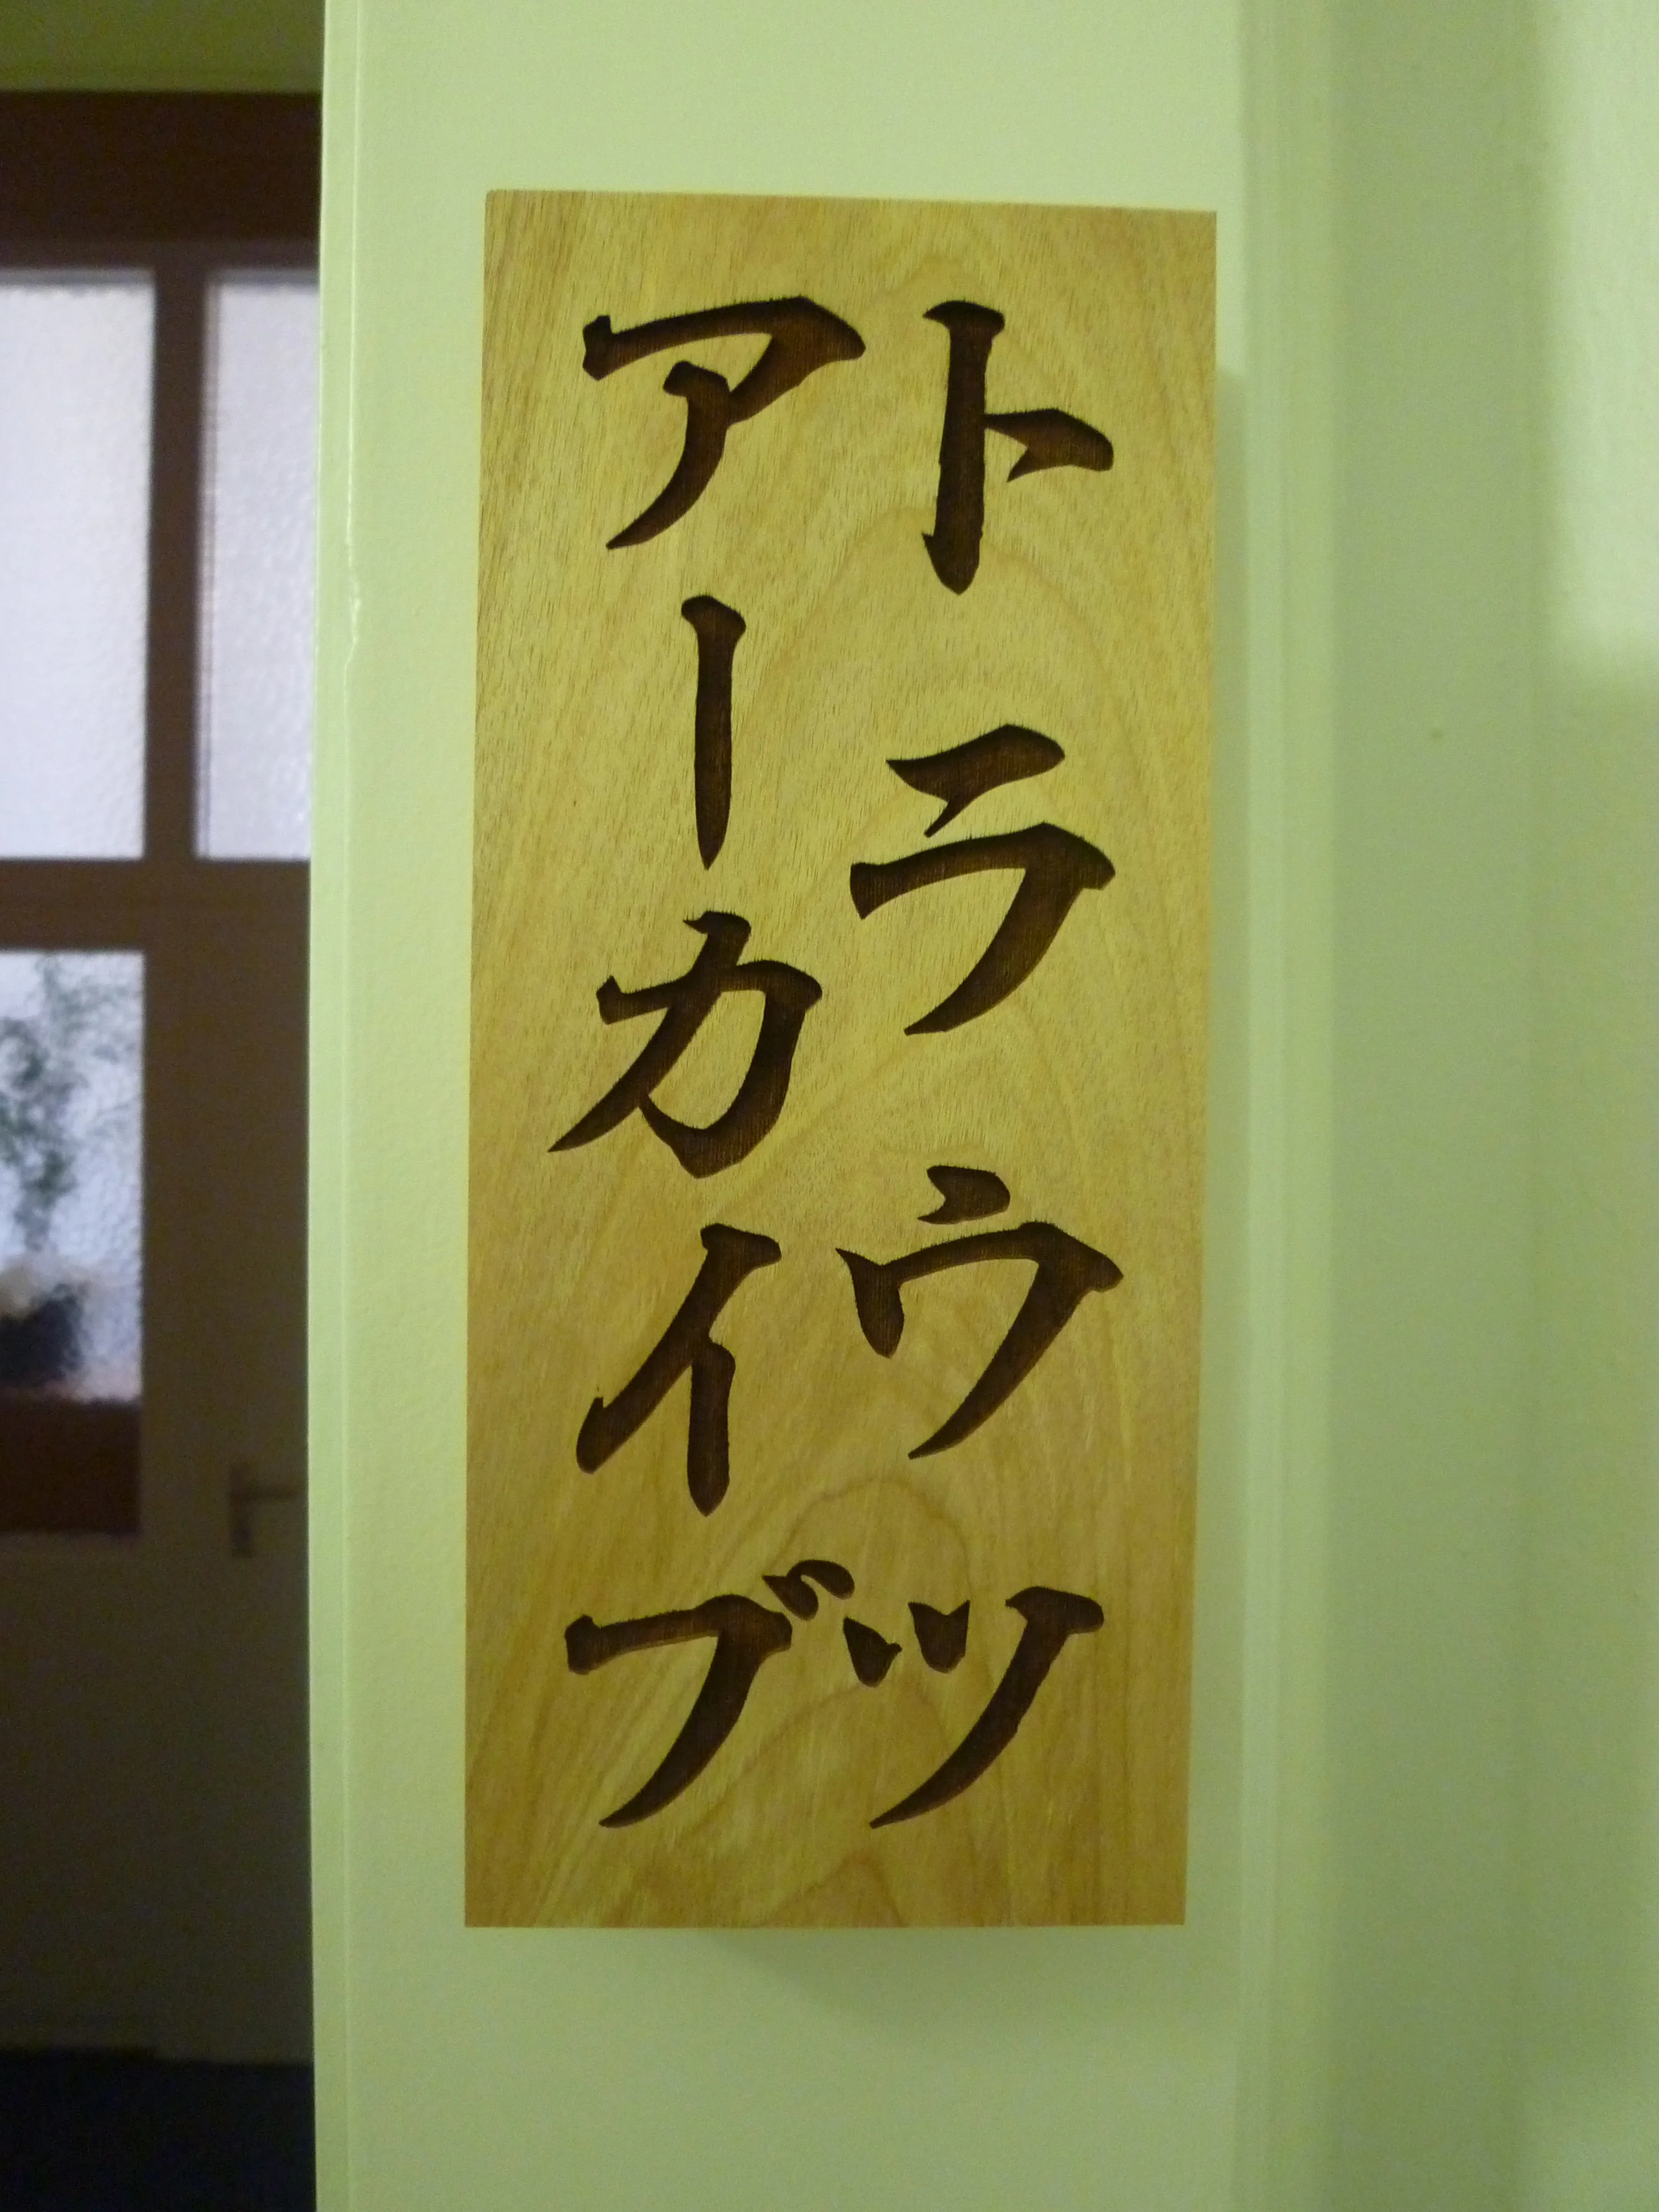 トラウツ
アーカイブ